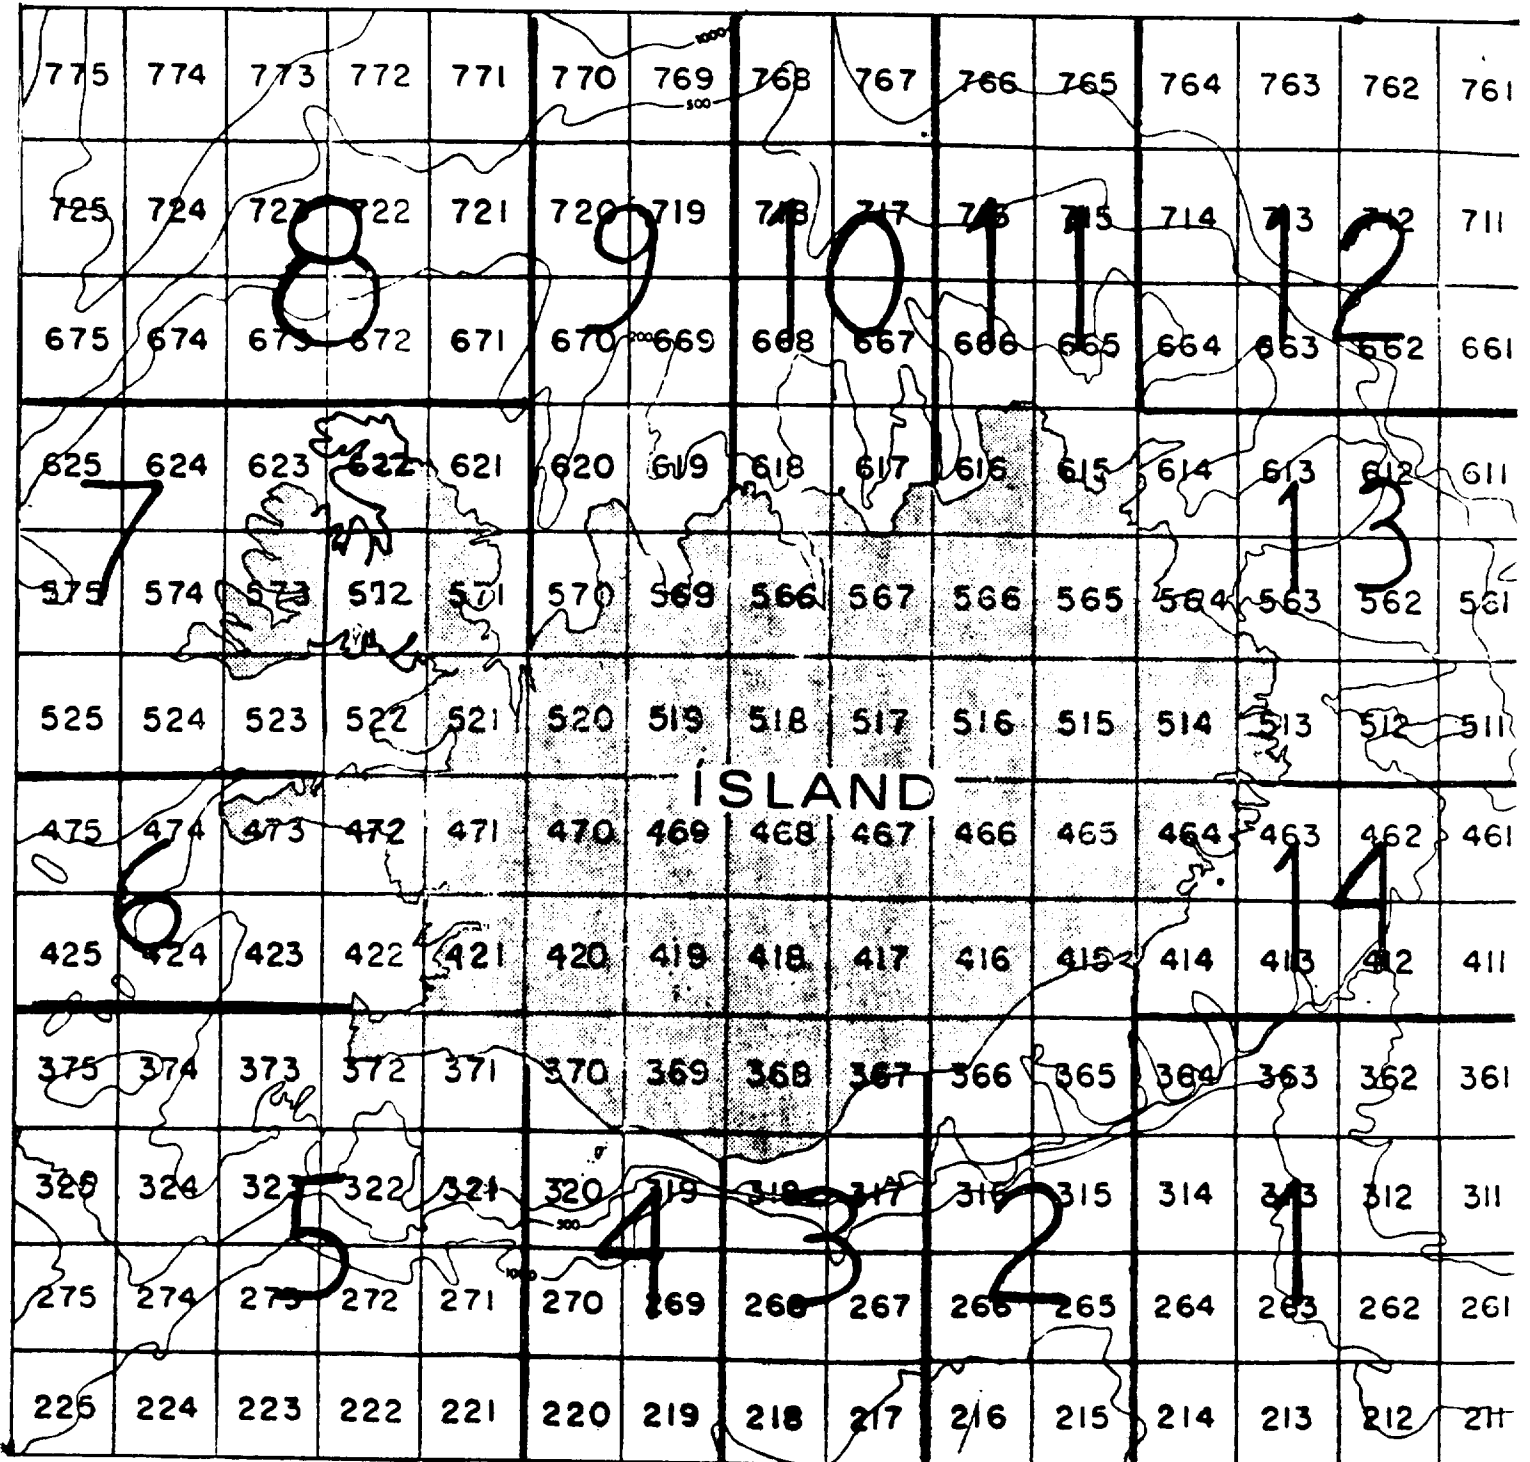 1000
775 774 773 772 771 770 769 768 767 766 765 764 763 762 761
500
725 724 723 722 721 720 719 718 717 716 715 714 713 712 711
8 9 10 11 12
675 674 673 672 671 670 200 669 668 667 666 665 664 663 662 661
625 624 623 622 621 620 619 618 617 616 615 614 613 612 611
7 13
575 574 573 572 571 570 569 566 567 566 565 564 563 562 561
525 524 523 522 521 520 519 518 517 516 515 514 513 512 511
ÍSLAND
475 474 473 472 471 470 469 468 467 466 465 464 463 462 461
6 14
425 424 423 422 421 420 419 418 417 416 415 414 413 412 411
375 374 373 372 371 370 369 368 367 366 365 364 363 362 361
325 324 323 322 321 320 319 318 317 316 315 314 313 312 311
500
5 4 3 2 1
1000
275 274 273 272 271 270 269 268 267 266 265 264 263 262 261
225 224 223 222 221 220 219 218 217 216 215 214 213 212 211